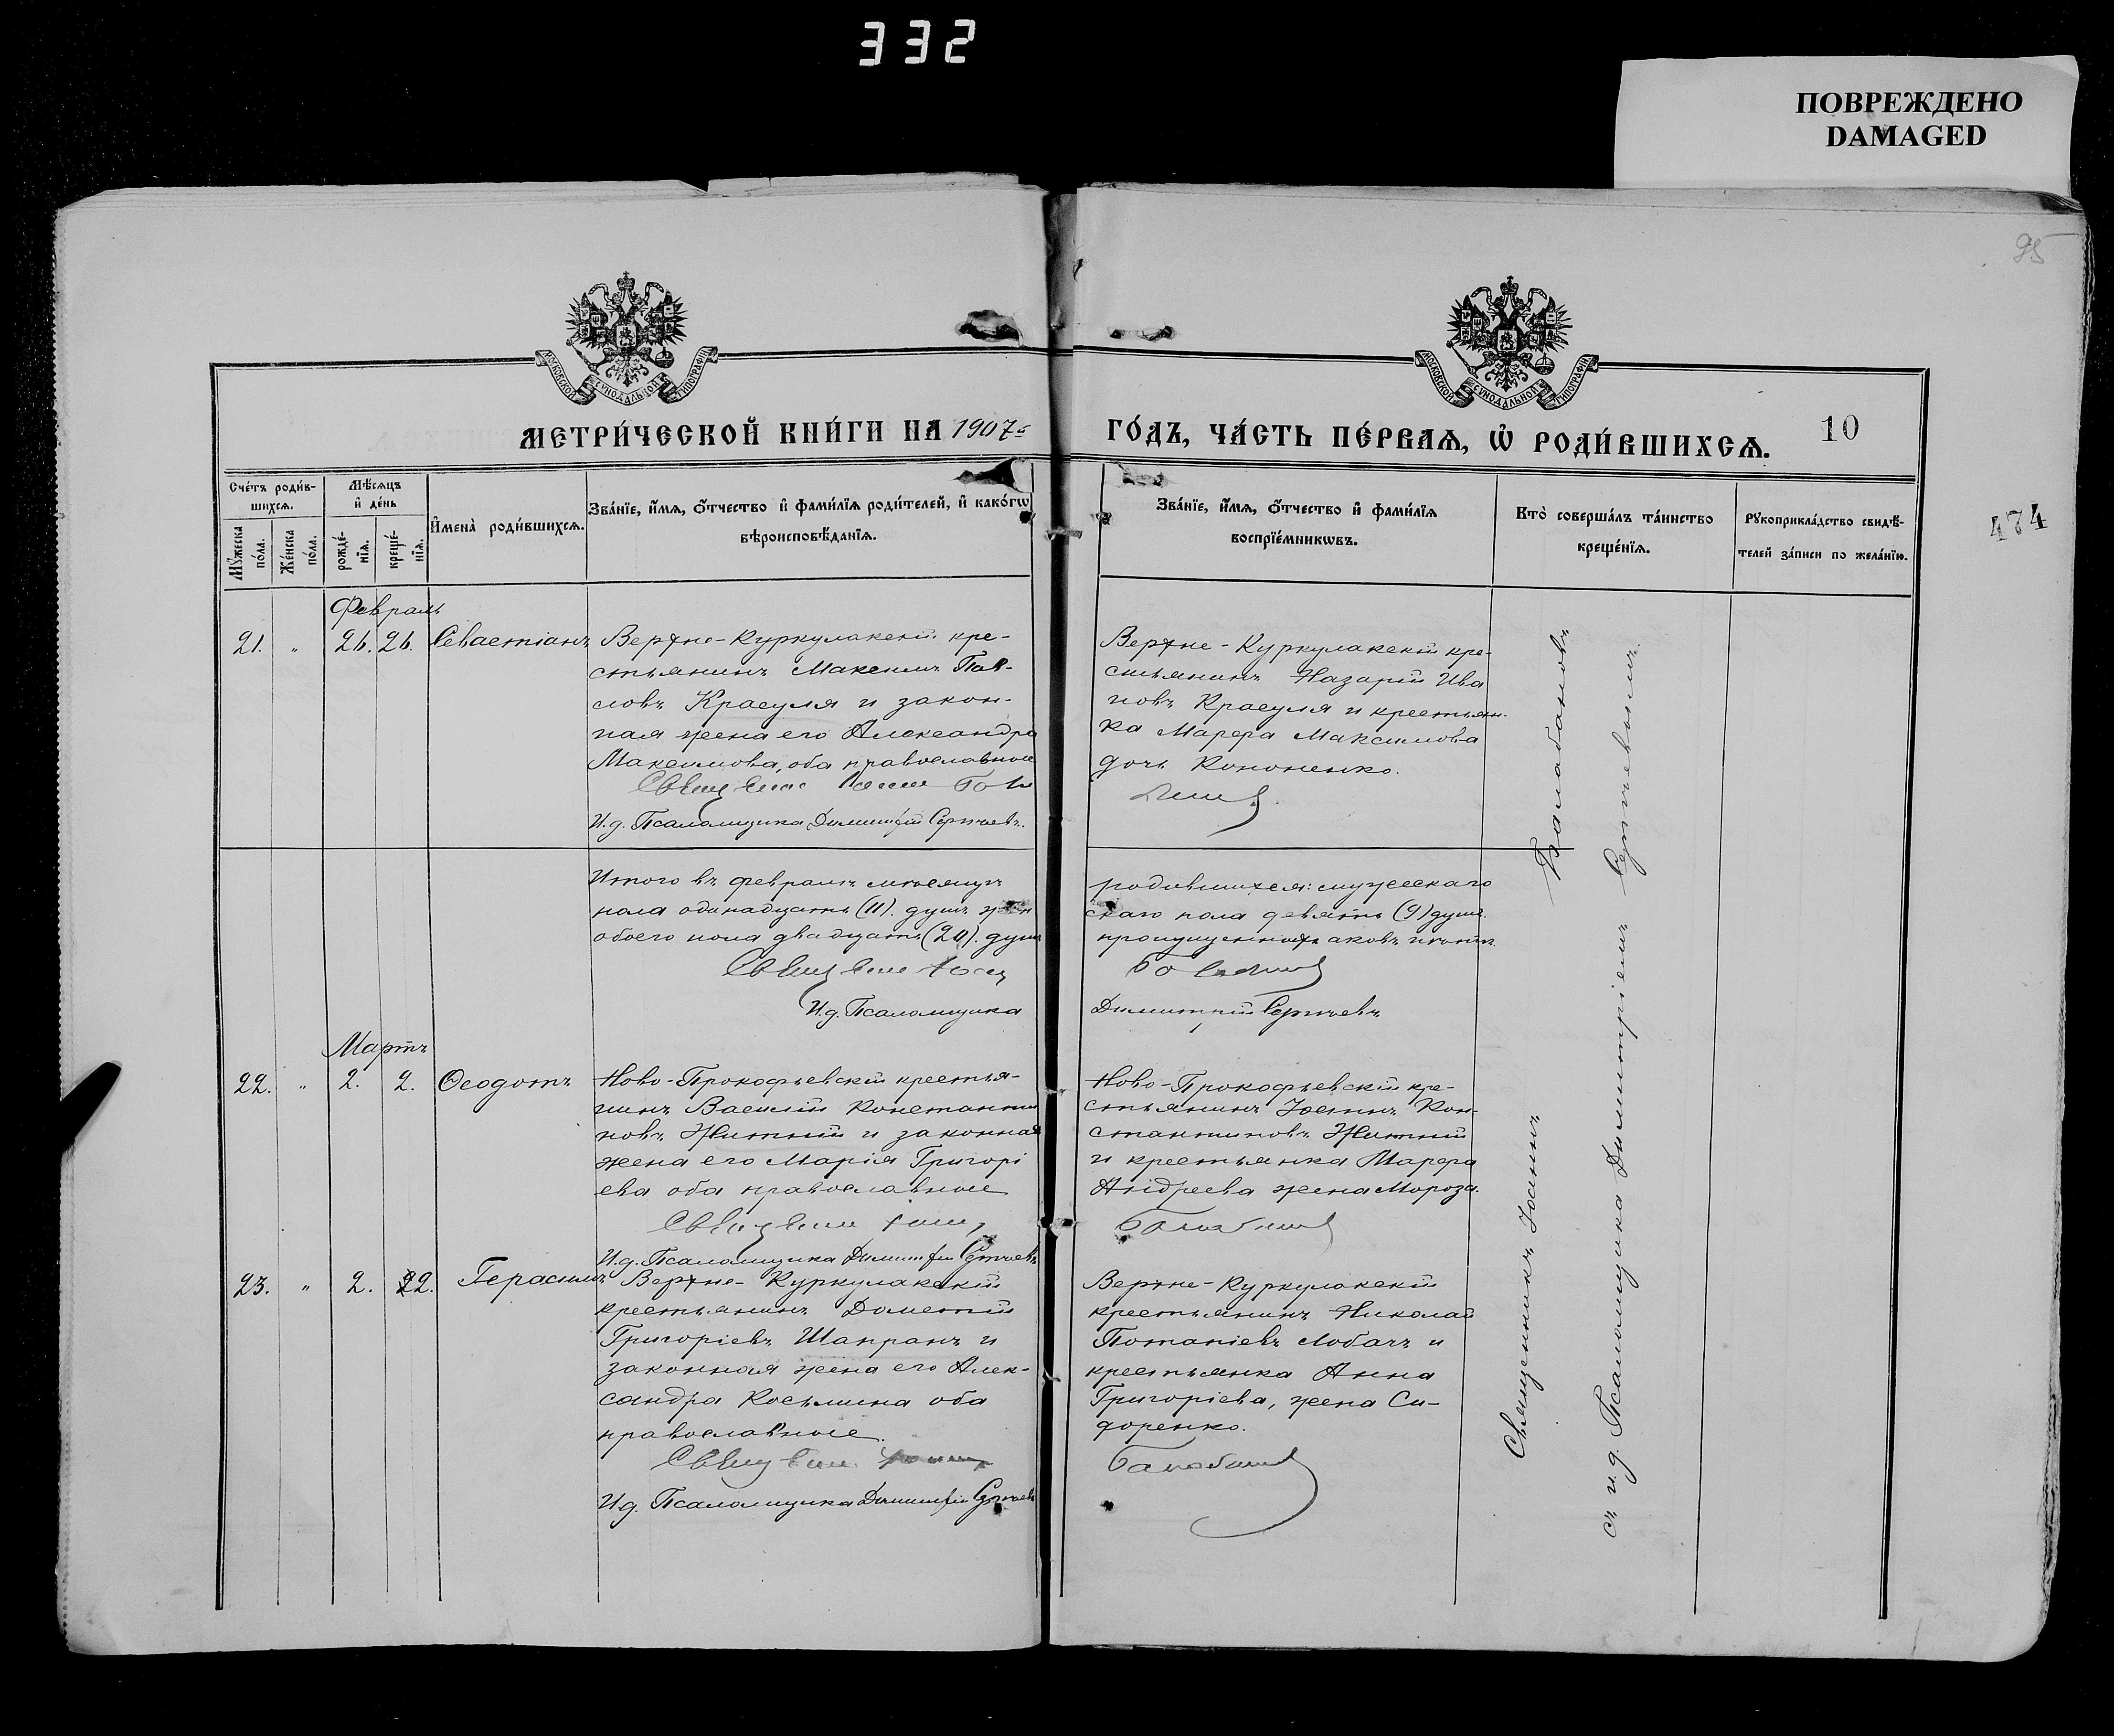 332
ПОВРЕЖДЕНО
DAMAGED
95
МОСКОВСКОЙ СѴНОДАЛЬНОЙ ТИПОГРАФІИ
МОСКОВСКОЙ СѴНОДАЛЬНОЙ ТИПОГРАФІИ
МЕТРИ́ЧЕСКОЙ КНИ́ГИ НА 1907 г
ГО́ДЪ, ЧА́СТЬ ПЕ́РВАѦ, Ѡ҆ РОДИ́ВШИХСѦ.
10
474
Сче́тъ роди́в-
шихсѧ.
Мꙋ́жеска по́ла.
Же́нска по́ла.
Мѣ́сѧцъ
и҆ де́нь
рожде́-
нїѧ.
креще́-
нїѧ.
И҆мена̀ роди́вшихсѧ.
Зва́нїе, и҆́мѧ, ѻ҆́тчество и҆ фами́лїѧ роди́телей, и҆ како́гѡ
вѣроисповѣ́данїѧ.
Зва́нїе, и҆́мѧ, ѻ҆́тчество и҆ фами́лїѧ
воспрїе́мникѡвъ.
Кто̀ соверша́лъ та́инство
креще́нїѧ.
Рꙋкоприкла́дство свидѣ́-
телей за́писи по жела́нїю.
Февраль
21. " 26. 26. Севастіанъ
Верхне-Куркулакскій кре-
стьянинъ Максимъ Пав-
ловъ Красуля и закон-
ная жена его Александра
Максимова, оба православные
И.д. Псаломщика Димитрій Сергѣевъ.
Верхне-Куркулакскій кре-
стьянинъ Назарій Ива
новъ Красуля и крестьян-
ка Марфа Максимова
дочь Кононенко.
Итого въ февралѣ мѣсяцѣ
родившихся: мужескаго
пола одинадцать (11). душъ
скаго пола девять (9) душъ.
обоего пола двадцать (20). душъ
пропущенныхъ
И.д. Псаломщика
Димитрій Сергѣевъ
Мартъ
22. " 2. 2. Ѳеодотъ
Ново-Прокофьевскій крестья-
нинъ Василій Константи
новъ Житний и законная
жена его Марія Григорі
ева оба православные
И.д. Псаломщика Димитрій Сергѣевъ
Ново-Прокофьевскій кре-
стьянинъ Іоаннъ Кон-
стантиновъ Житний
и крестьянка Марфа
Андреева жена Мороза.
Балабановъ
23. " 2. 2. Герасимъ
Верхне-Куркулакскій
крестьянинъ Дометій
Григоріевъ Шапранъ и
законная жена его Алек-
сандра Косьмина оба
православные.
И.д. Псаломщика Димитрій Сергѣевъ
Верхне-Куркулакскій
крестьянинъ Николай
Потапіевъ Лобачъ и
крестьянка Анна
Григоріева, жена Си-
доренко.
Балабановъ
Священникъ Іоаннъ Балабановъ
съ и.д. Псаломщика Димитріемъ Сергѣевымъ.